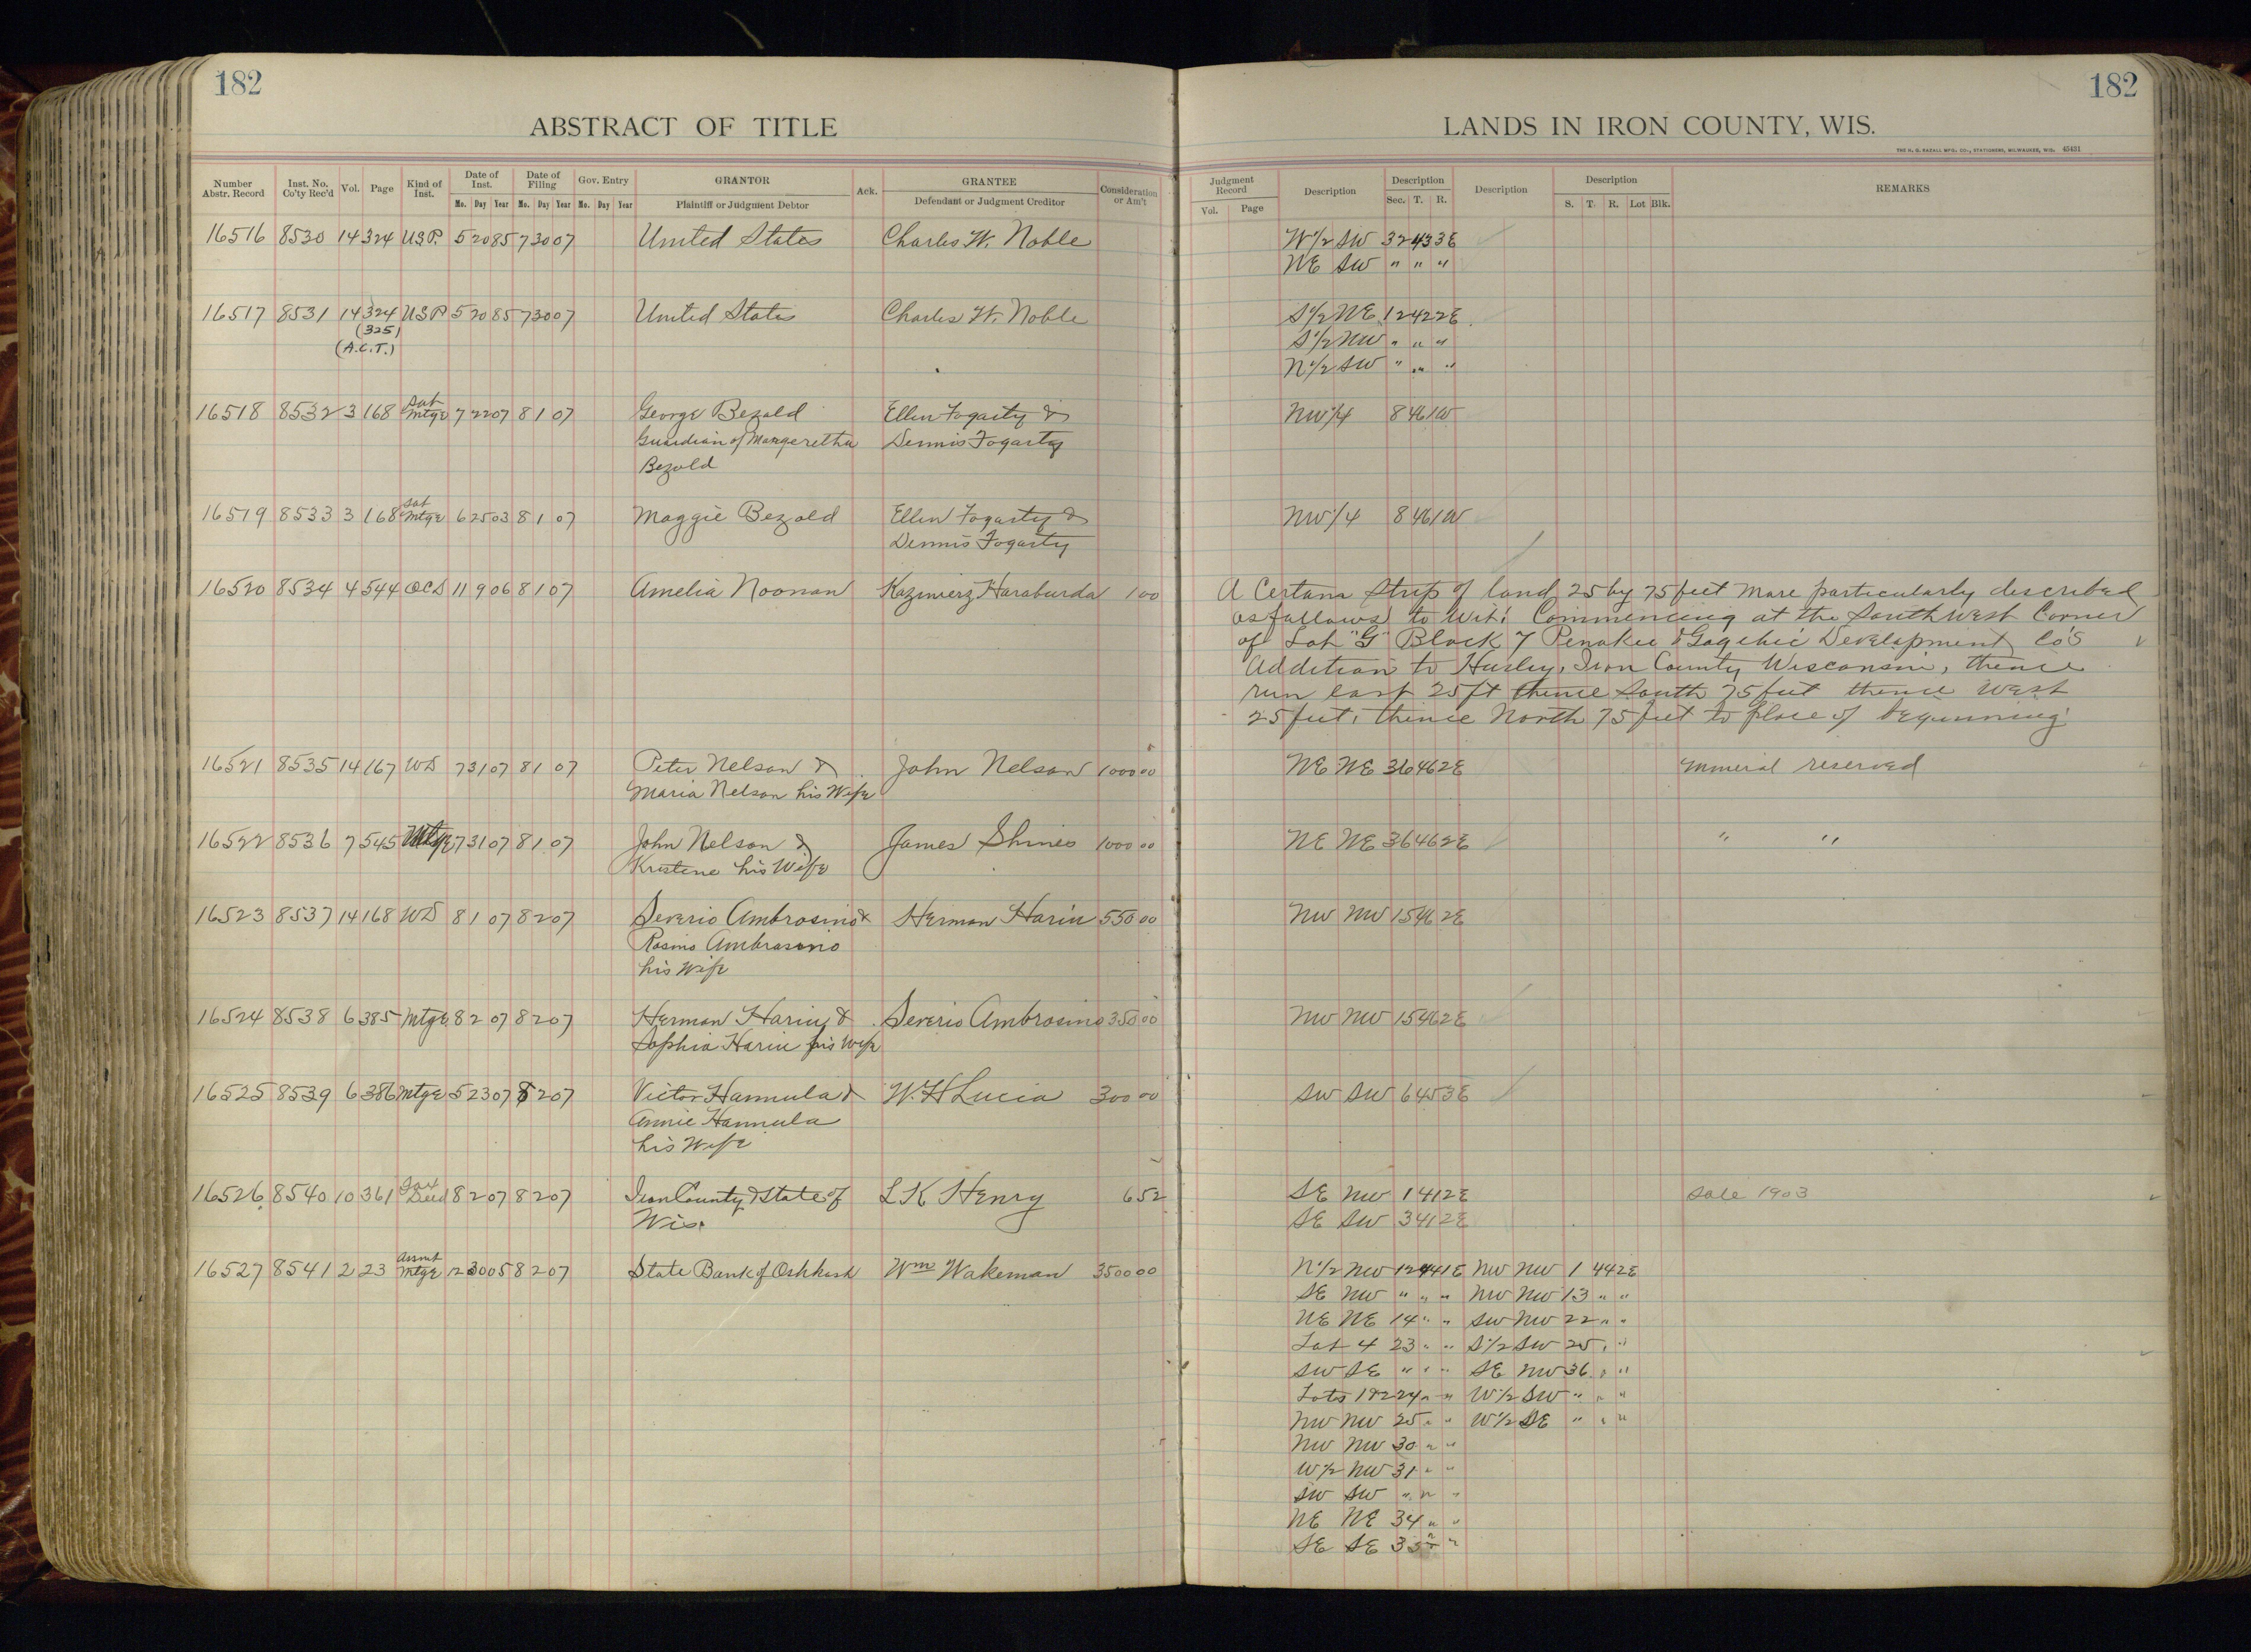 182
ABSTRACT OF TITLE
Number Abstr. Record | Inst. No. Co'ty Rec'd | Vol. | Page | Kind of Inst. | Date of Inst. Mo. Day Year | Date of Filing Mo. Day Year | Gov. Entry Mo. Day Year | GRANTOR Plaintiff or Judgment Debtor | Ack. | GRANTEE Defendant or Judgment Creditor | Consideration or Am't
16516 8530 14 324 U.S.P. 5 20 85 7 30 07 United States Charles W. Noble
16517 8531 14 324 U.S.P 5 20 85 7 30 07 United States Charles W. Noble
(325)
(A.C.T.)
16518 8532 3 168 Sat Mtge 7 22 07 8 1 07 George Bezold Ellen Fogarty &
Guardian of Margeretha Dennis Fogarty
Bezold
16519 8533 3 168 Sat Mtge 6 25 03 8 1 07 Maggie Bezold Ellen Fogarty &
Dennis Fogarty
16520 8534 4 544 QCD 11 9 06 8 1 07 Amelia Noonan Kazimierz Haraburda 1 00
16521 8535 14 167 WD 7 31 07 8 1 07 Peter Nelson & John Nelson 1000 00
Maria Nelson his Wife
16522 8536 7 545 Mtge 7 31 07 8 1 07 John Nelson & James Shines 1000 00
Kristine his Wife
16523 8537 14 168 WD 8 1 07 8 2 07 Severio Ambrosino & Herman Harin 550 00
Rosino Ambrosino
his Wife
16524 8538 6 385 Mtge 8 2 07 8 2 07 Herman Harin & Severio Ambrosino 350 00
Sophia Harin his Wife
16525 8539 6 386 Mtge 5 23 07 8 2 07 Victor Hannula & W. H Lucia 300 00
Annie Hannula
his Wife
16526 8540 10 361 Tax Deed 8 2 07 8 2 07 Iron County & State of L K Henry 6 52
Wis.
16527 8541 2 23 Assmt Mtge 12 30 05 8 2 07 State Bank of Oshkosh Wm Wakeman 3500 00
182
LANDS IN IRON COUNTY, WIS.
THE H. G. RAZALL MFG. CO., STATIONERS, MILWAUKEE, WIS. 45431
Judgment Record Vol. Page | Description | Description Sec. T. R. | Description | Description S. T. R. Lot Blk. | REMARKS
W 1/2 SW 32 43 3E
NE SW " " "
S 1/2 NE 12 42 2E
S 1/2 NW " " "
N 1/2 SW " " "
NW 1/4 8 46 1W
NW 1/4 8 46 1W
A Certain Strip of land 25 by 75 feet more particularly described
as follows to wit: Commencing at the Southwest Corner
of Lot "G" Block 7 Penokee & Gogebic Development Co's
Addition to Hurley, Iron County Wisconsin, thence
run east 25 ft thence South 75 feet thence West
25 feet, thence North 75 feet to place of beginning
NE NE 36 46 2E mineral reserved
NE NE 36 46 2E " "
NW NW 15 46 2E
NW NW 15 46 2E
SW SW 6 45 3E
SE NW 1 41 2E Sale 1903
SE SW 3 41 2E
N 1/2 NW 12 44 1E NW NW 1 44 2E
SE NW " " " NW NW 13 " "
NE NE 14 " " SW NW 22 " "
Lot 4 23 " " S 1/2 SW 25 " "
SW SE " " " SE NW 36 " "
Lots 1 & 2 24 " " W 1/2 SW " " "
NW NW 25 " " W 1/2 SE " " "
NW NW 30 " "
W 1/2 NW 31 " "
SW SW " " "
NE NE 34 " "
SE SE " "